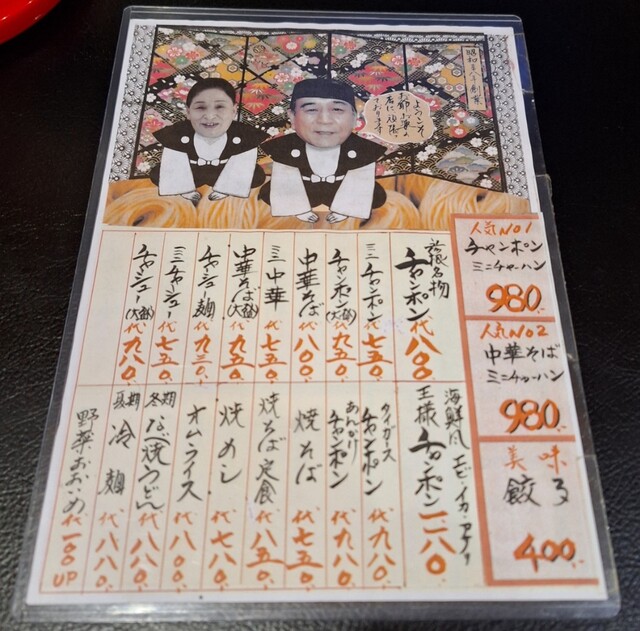 ようこそ!
お節小車の
人気No1
チャンポン
ミニチャーハン
980.
人気No2
中華そば
ミニチャーハン
980.
美味
餃子
400.
チャンポン 代八〇〇.
ミニチャンポン 代七五〇.
チャンポン(大盛) 代九五〇.
中華そば 代八〇〇.
ミニ中華 代七五〇.
中華そば(大盛) 代九五〇.
チャーシュー麺 代九三〇.
ミニチャーシュー 代七五〇.
チャーシュー(大盛) 代九八〇.
海鮮風 エビ・イカ・アサリ
王様チャンポン 一一八〇.
タイガースチャンポン 代九八〇.
あんかけチャンポン 代九八〇.
焼そば 代七五〇.
焼そば定食 代八五〇.
焼めし 代七八〇.
オムライス 代八八〇.
冬期 なべ焼うどん 代八八〇.
夏期 冷麺 代八八〇.
野菜おおいめ 代一〇〇UP